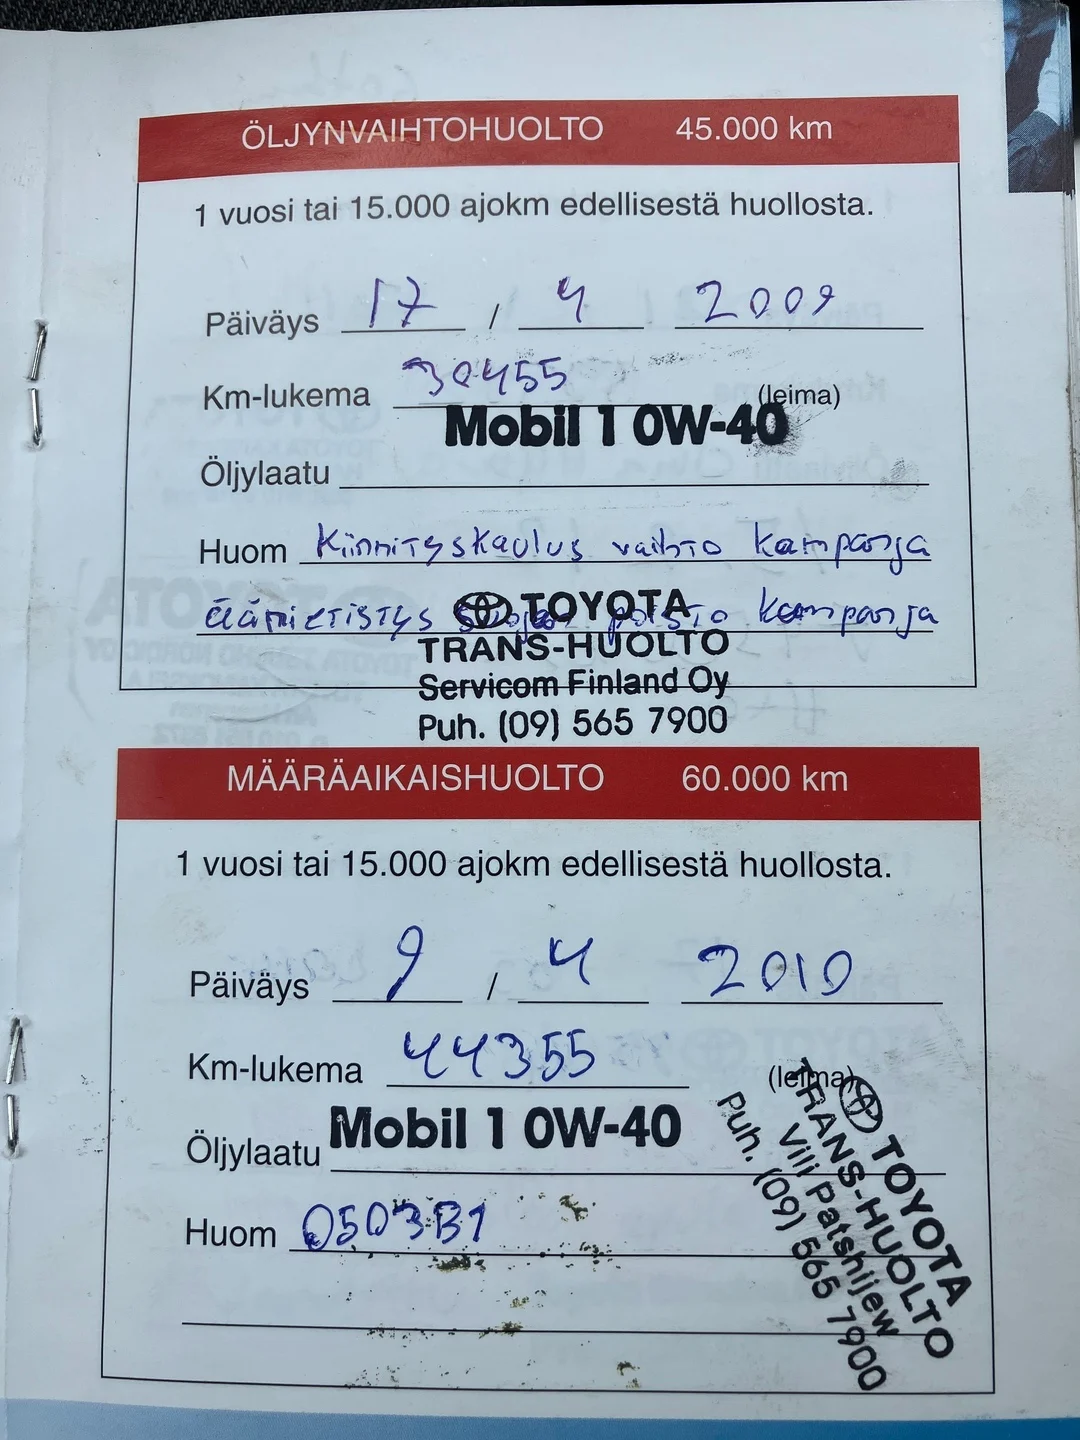 ÖLJYNVAIHTOHUOLTO 45.000 km
1 vuosi tai 15.000 ajokm edellisestä huollosta.
Päiväys 17 / 4 2009
Km-lukema 30455 (leima)
Mobil 1 0W-40
Öljylaatu
Huom Kiinnityskaulus vaihto kampanja
äänieristys suojan poisto kampanja
TOYOTA
TRANS-HUOLTO
Servicom Finland Oy
Puh. (09) 565 7900
MÄÄRÄAIKAISHUOLTO 60.000 km
1 vuosi tai 15.000 ajokm edellisestä huollosta.
Päiväys 9 / 4 2010
Km-lukema 44355 (leima)
Öljylaatu Mobil 1 0W-40
Huom 0503B1
TOYOTA
TRANS-HUOLTO
Vili Patshijew
Puh. (09) 565 7900